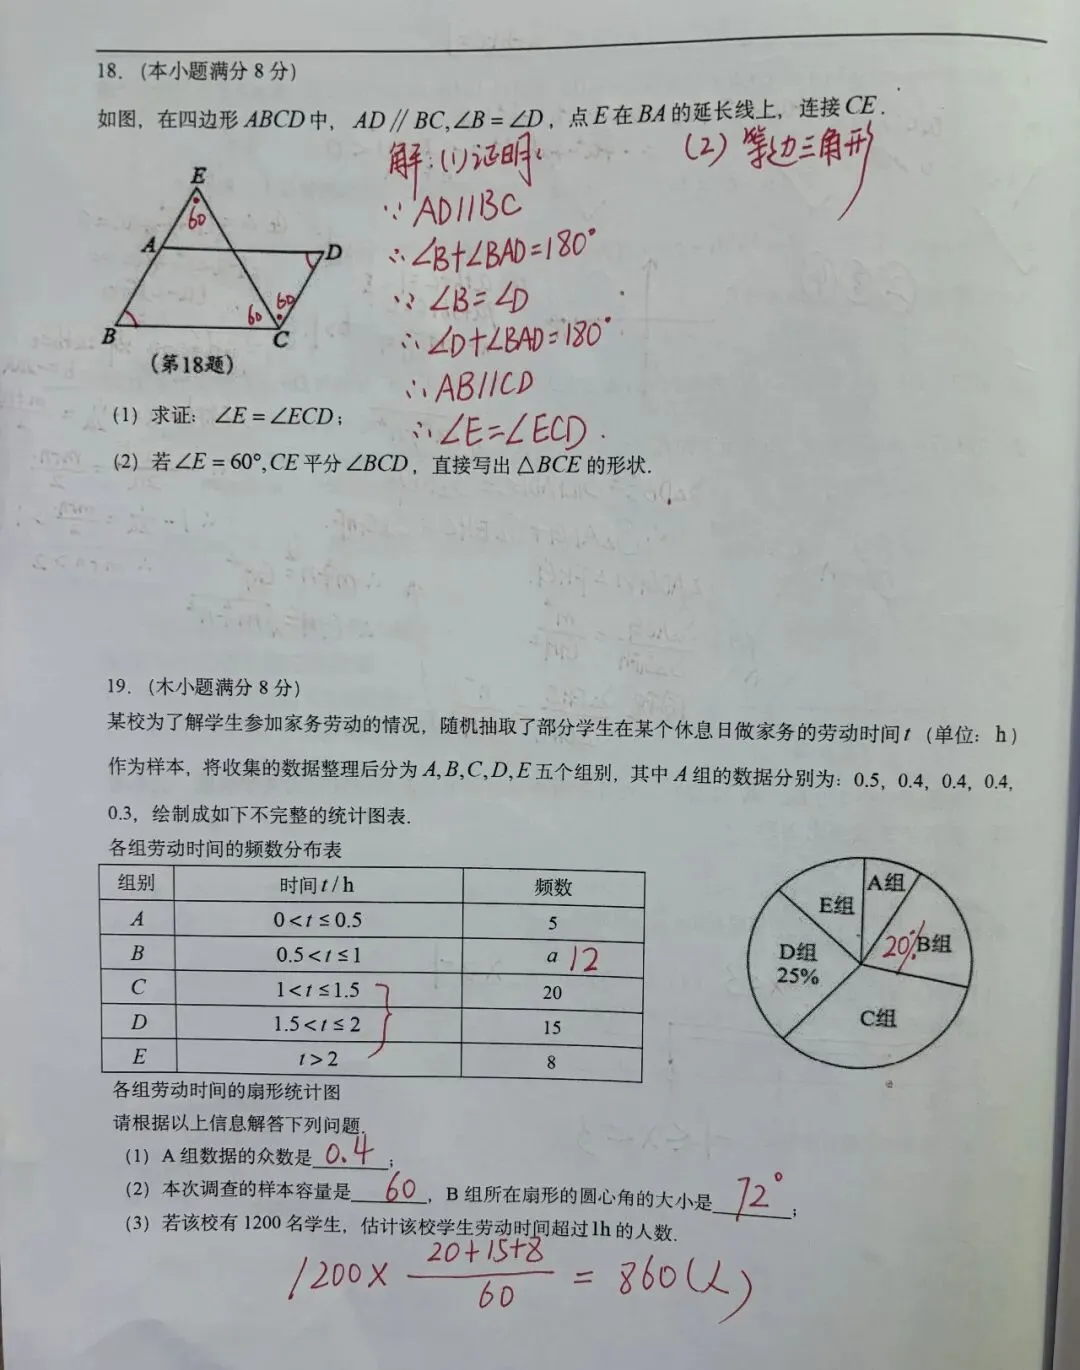 18. (本小题满分 8 分)
如图, 在四边形 ABCD 中, AD // BC, ∠B = ∠D, 点 E 在 BA 的延长线上, 连接 CE.
解:(1)证明:
(2) 等边三角形
∵ AD//BC
∴ ∠B+∠BAD=180°
∵ ∠B=∠D
∴ ∠D+∠BAD=180°
∴ AB//CD
∴ ∠E=∠ECD.
E
60
A
D
60
60
B
C
(第18题)
(1) 求证: ∠E = ∠ECD;
(2) 若 ∠E = 60°, CE 平分 ∠BCD, 直接写出 △BCE 的形状.
19. (木小题满分 8 分)
某校为了解学生参加家务劳动的情况, 随机抽取了部分学生在某个休息日做家务的劳动时间 t (单位: h)
作为样本, 将收集的数据整理后分为 A, B, C, D, E 五个组别, 其中 A 组的数据分别为: 0.5, 0.4, 0.4, 0.4,
0.3, 绘制成如下不完整的统计图表.
各组劳动时间的频数分布表
组别 时间 t / h 频数
A 0 < t ≤ 0.5 5
B 0.5 < t ≤ 1 a 12
C 1 < t ≤ 1.5 20
D 1.5 < t ≤ 2 15
E t > 2 8
A组
E组
20% B组
D组
25%
C组
各组劳动时间的扇形统计图
请根据以上信息解答下列问题.
(1) A 组数据的众数是 0.4 ;
(2) 本次调查的样本容量是 60 , B 组所在扇形的圆心角的大小是 72° ;
(3) 若该校有 1200 名学生, 估计该校学生劳动时间超过 1h 的人数.
1200 × (20+15+8)/60 = 860(人)